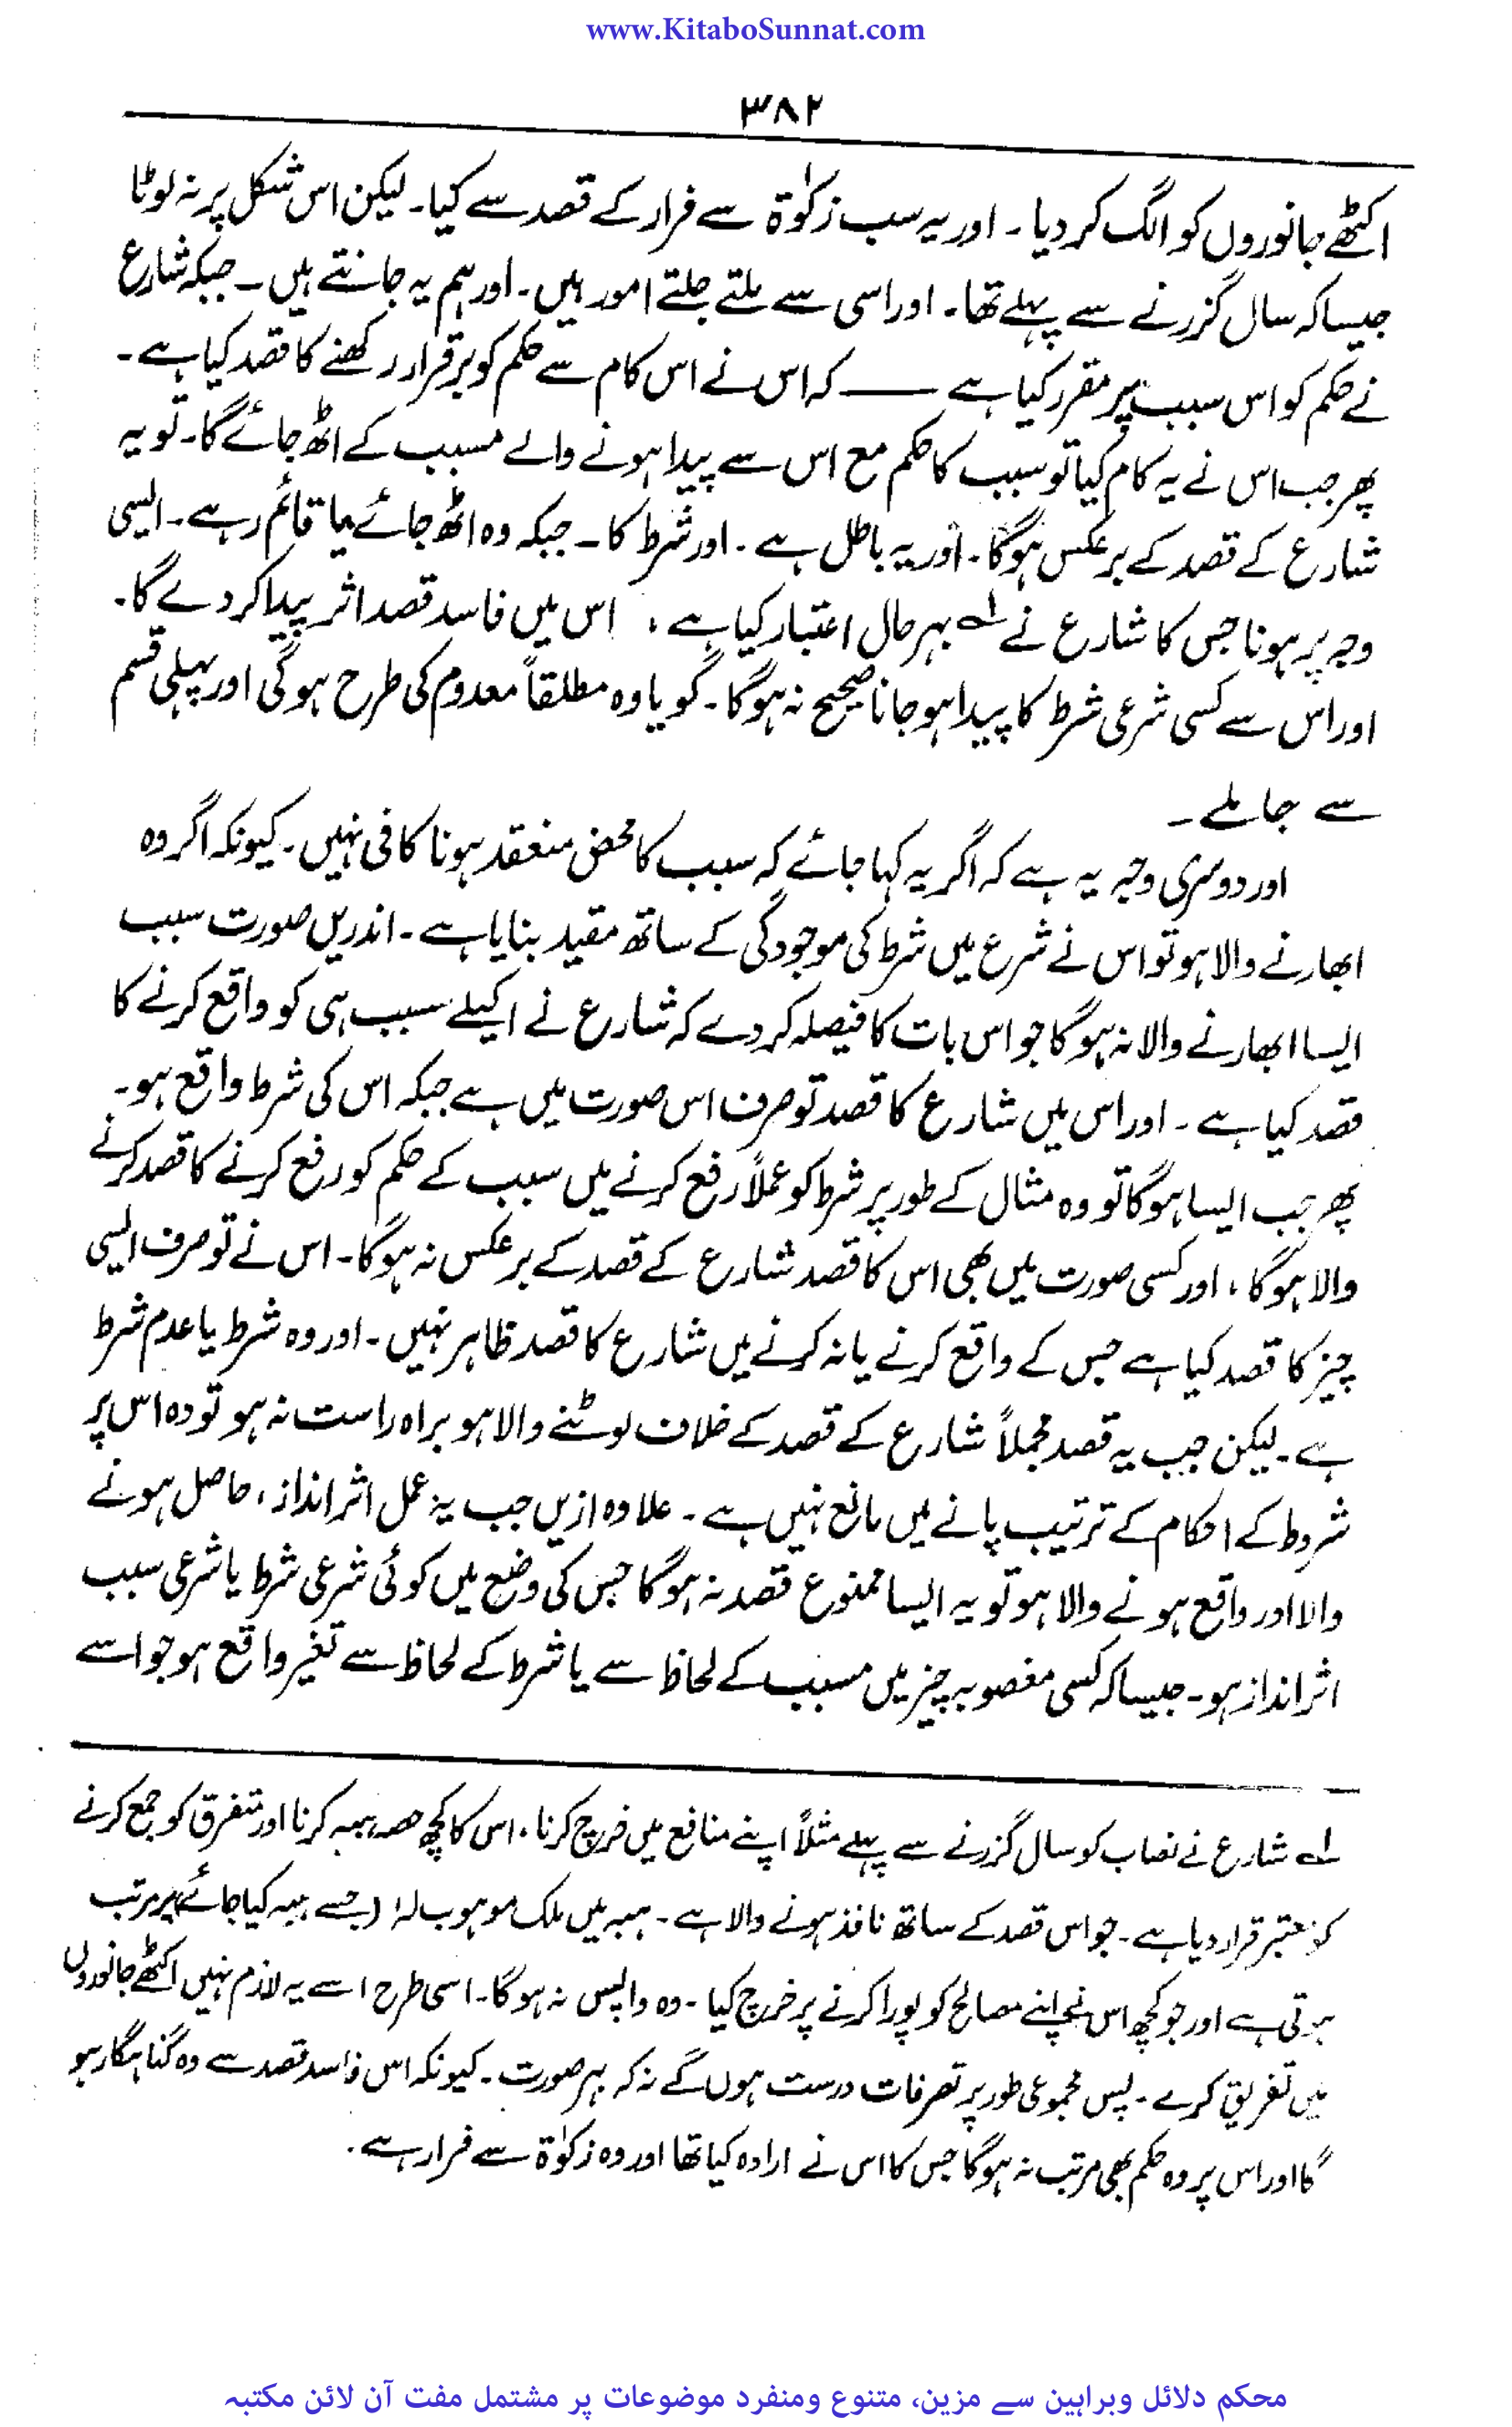 www.KitaboSunnat.com
۳۸۲
اکٹھے جانوروں کو الگ کر دیا ۔ اور یہ سب زکوٰۃ سے فرار کے قصد سے کیا۔ لیکن اس شکل پر نہ لوٹا
جیسا کہ سال گزرنے سے پہلے تھا۔ اور اسی سے ملتے جلتے امور ہیں۔ اور ہم یہ جانتے ہیں۔ جبکہ شارع
نے حکم کو اس سبب پر مقرر کیا ہے ــــ کہ اس نے اس کام سے حکم کو برقرار رکھنے کا قصد کیا ہے۔
پھر جب اس نے یہ کام کیا تو سبب کا حکم مع اس سے پیدا ہونے والے مسبب کے اٹھ جائے گا۔ تو یہ
شارع کے قصد کے برعکس ہوگا۔ اور یہ باطل ہے ۔ اور شرط کا ۔ جبکہ وہ اٹھ جائے یا قائم رہے۔ ایسی
وجہ پر ہونا جس کا شارع نے ؎۱ بہر حال اعتبار کیا ہے ، اس میں فاسد قصد اثر پیدا کر دے گا۔
اور اس سے کسی شرعی شرط کا پیدا ہو جانا صحیح نہ ہوگا۔ گویا وہ مطلقاً معدوم کی طرح ہوگی اور پہلی قسم
سے جا ملے ۔
اور دوسری وجہ یہ ہے کہ اگر یہ کہا جائے کہ سبب کا محض منعقد ہونا کافی نہیں۔ کیونکہ اگر وہ
ابھارنے والا ہو تو اس نے شرع میں شرط کی موجودگی کے ساتھ مقید بنایا ہے ۔ اندریں صورت سبب
ایسا ابھارنے والا نہ ہوگا جو اس بات کا فیصلہ کر دے کہ شارع نے اکیلے سبب ہی کو واقع کرنے کا
قصد کیا ہے ۔ اور اس میں شارع کا قصد تو صرف اس صورت میں ہے جبکہ اس کی شرط واقع ہو۔
پھر جب ایسا ہوگا تو وہ مثال کے طور پر شرط کو عملاً رفع کرنے میں سبب کے حکم کو رفع کرنے کا قصد کرنے
والا ہوگا ، اور کسی صورت میں بھی اس کا قصد شارع کے قصد کے برعکس نہ ہوگا۔ اس نے تو صرف ایسی
چیز کا قصد کیا ہے جس کے واقع کرنے یا نہ کرنے میں شارع کا قصد ظاہر نہیں ۔ اور وہ شرط یا عدم شرط
ہے ۔ لیکن جب یہ قصد مجملاً شارع کے قصد کے خلاف لوٹنے والا ہو براہ راست نہ ہو تو وہ اس پر
شروط کے احکام کے ترتیب پانے میں مانع نہیں ہے ۔ علاوہ ازیں جب یہ عمل اثر انداز ، حاصل ہونے
والا اور واقع ہونے والا ہو تو یہ ایسا ممنوع قصد نہ ہوگا جس کی وضع میں کوئی شرعی شرط یا شرعی سبب
اثر انداز ہو۔ جیسا کہ کسی مغصوبہ چیز میں مسبب کے لحاظ سے یا شرط کے لحاظ سے تغیر واقع ہو جو اسے
؎۱ شارع نے نصاب کو سال گزرنے سے پہلے مثلاً اپنے منافع میں خرچ کرنا ، اس کا کچھ حصہ ہبہ کرنا اور متفرق کو جمع کرنے
کو معتبر قرار دیا ہے ۔ جو اس قصد کے ساتھ نافذ ہونے والا ہے ۔ ہبہ میں ملک موہوب لہ (جسے ہبہ کیا جائے) پر مرتب
ہوتی ہے اور جو کچھ اس نے اپنے مصالح کو پورا کرنے پر خرچ کیا ۔ وہ واپس نہ ہوگا۔ اسی طرح اسے یہ لازم نہیں اکٹھے جانوروں
میں تفریق کرے ۔ پس مجموعی طور پر تصرفات درست ہوں گے نہ کہ بہر صورت ۔ کیونکہ اس فاسد قصد سے وہ گناہگار ہو
گا اور اس پر وہ حکم بھی مرتب نہ ہوگا جس کا اس نے ارادہ کیا تھا اور وہ زکوٰۃ سے فرار ہے ۔
محکم دلائل وبراہین سے مزین، متنوع ومنفرد موضوعات پر مشتمل مفت آن لائن مکتبہ